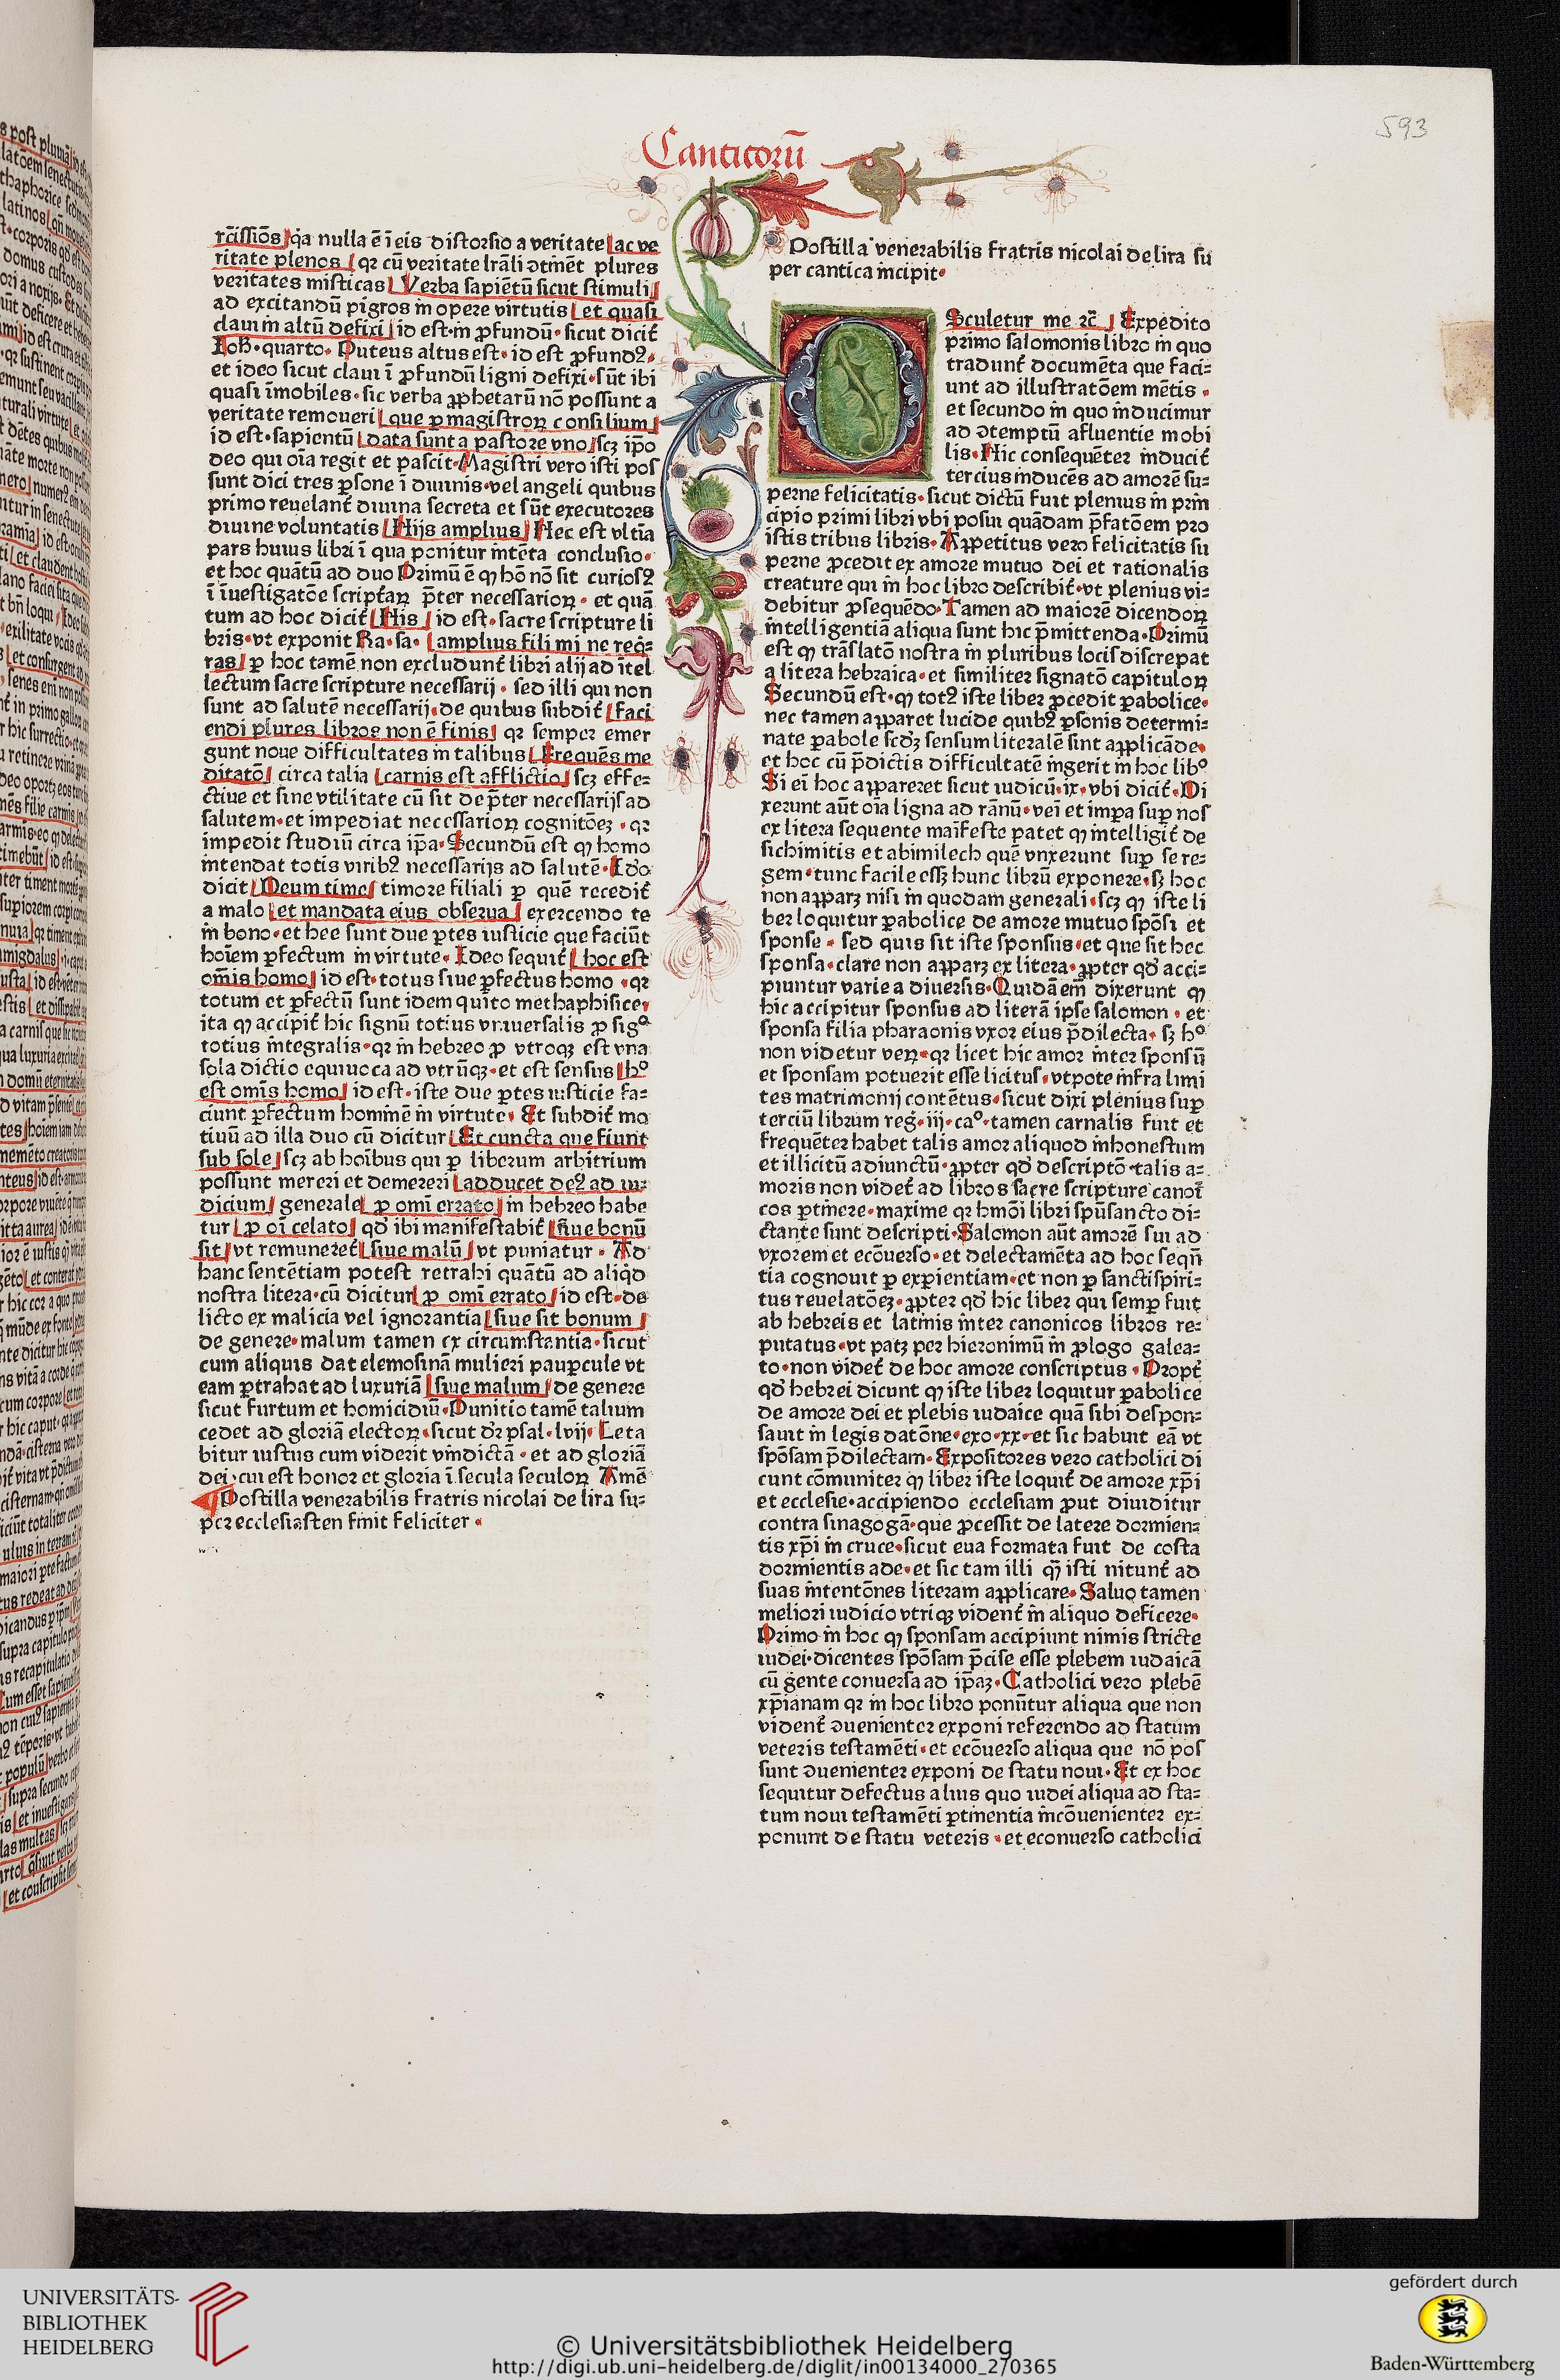 Canticorū
593
rc̄issiōs q̇a nulla ē ī eis distorsio a veritate ac ve
ritate plenos qꝛ cū veritate lr̄ali ꝯtinēt plures
veritates misticas Verba sapiētū sicut stimuli
ad excitandū pigros in opere virtutis et quasi
claui in altū defixi id est·in ꝓfundū·sicut dicit̄
Ioh·quarto· Puteus altus est·id est ꝓfundꝰ·
et ideo sicut claui ī ꝓfundū ligni defixi·sūt ibi
quasi īmobiles·sic verba ꝓphetarū nō possunt a
veritate remoueri que ꝑ magistroꝝ consilium
id est·sapientū data sunt a pastore vno scꝫ ip̄o
deo qui oīa regit et pascit·Magistri vero isti pos
sunt dici tres ꝑsone ī diuinis·vel angeli quibus
primo reuelant̄ diuina secreta et sūt executores
diuine voluntatis Hijs amplius Hec est vltīa
pars huius libri ī qua ponitur intēta conclusio·
et hoc quātū ad duo Primū ē ꝙ hō nō sit curiosꝰ
ī īuestigatōe scriptaꝝ p̄ter necessarioꝝ·et quā
tum ad hoc dicit̄ His id est·sacre scripture li
bris·vt exponit Ra·sa· amplius fili mi ne req̇-
ras ꝑ hoc tamē non excludunt̄ libri alij ad ītel
lectum sacre scripture necessarij·sed illi qui non
sunt ad salutē necessarij·de quibus subdit̄ faci
endi plures libros non ē finis qꝛ semper emer
gunt noue difficultates in talibus Frequēs me
ditatō circa talia carnis est afflictio scꝫ effe-
ctiue et sine vtilitate cū sit de p̄ter necessarijs ad
salutem·et impediat necessarioꝝ cognitōeꝫ·qꝛ
impedit studiū circa ip̄a·Secundū est ꝙ homo
intendat totis viribꝰ necessarijs ad salutē·Ido
dicit Deum time timore filiali ꝑ quē recedit̄
a malo et mandata eius obserua exercendo te
in bono·et hee sunt due ꝑtes iusticie que faciūt
hoīem ꝑfectum in virtute·Ideo sequit̄ hoc est
om̄is homo id est·totus siue ꝑfectus homo·qꝛ
totum et ꝑfectū sunt idem quīto methaphisice·
ita ꝙ accipit̄ hic signū totius vniuersalis ꝓ sigº
totius integralis·qꝛ in hebreo ꝓ vtroqꝫ est vna
sola dictio equiuoca ad vtrūqꝫ·et est sensus hº
est omīs homo id est·iste due ꝑtes iusticie fa-
ciunt ꝑfectum hominē in virtute·Et subdit̄ mo
tiuū ad illa duo cū dicitur Et cuncta que fiunt
sub sole scꝫ ab hoībus qui ꝑ liberum arbitrium
possunt mereri et demereri adducet deꝰ ad iu-
dicium generale ꝑ omī errato in hebreo habe
tur ꝑ oī celato qd̄ ibi manifestabit̄ siue bonū
sit vt remuneret̄ siue malū vt puniatur· Ad
hanc sentētiam potest retrahi quātū ad aliq̇d
nostra litera·cū dicitur ꝑ omī errato id est·de
licto ex malicia vel ignorantia siue sit bonum
de genere·malum tamen ex circumstantia·sicut
cum aliquis dat elemosinā mulieri pauꝑcule vt
eam ꝑtrahat ad luxuriā siue malum de genere
sicut furtum et homicidiū·Punitio tamē talium
cedet ad gloriā electoꝝ·sicut dr̄ psal·lvij·Leta
bitur iustus cum viderit vindictā·et ad gloriā
dei·cui est honor et gloria ī secula seculoꝝ Amē
Postilla venerabilis fratris nicolai de lira su-
per ecclesiasten finit feliciter·
Postilla venerabilis fratris nicolai de lira su
per cantica incipit·
Osculetur me ꝛc̄ Expedito
primo salomonis libro in quo
tradunt̄ documēta que faci-
unt ad illustratōem mētis·
et secundo in quo inducimur
ad ꝯtemptū affluentie mobi
lis·Hic consequēter inducit̄
tercius inducēs ad amorē su-
perne felicitatis·sicut dictū fuit plenius in prin
cipio primi libri vbi posui quādam p̄fatōem pro
istis tribus libris·Appetitus vero felicitatis su
perne ꝓcedit ex amore mutuo dei et rationalis
creature qui in hoc libro describit̄·vt plenius vi-
debitur ꝓsequēdo·Tamen ad maiorē dicendoꝝ
intelligentiā aliqua sunt hic p̄mittenda·Primū
est ꝙ trāslatō nostra in pluribus locis discrepat
a litera hebraica·et similiter signatō capituloꝝ
Secundū est·ꝙ totꝰ iste liber ꝓcedit ꝑabolice·
nec tamen apparet lucide quibꝰ ꝑsonis determi-
nate ꝑabole scd'ꝫ sensum literalē sint applicāde·
et hoc cū p̄dictis difficultatē ingerit in hoc libº
Si eī hoc appareret sicut iudicū·ix·vbi dicit̄·Di
xerunt aūt oīa ligna ad rānū·veī et impa suꝑ nos
ex litera sequente maīfeste patet ꝙ intelligit̄ de
sichimitis et abimilech quē vnxerunt suꝑ se re-
gem·tunc facile essꝫ hunc librū exponere·sꝫ hoc
non apparꝫ nisi in quodam generali·scꝫ ꝙ iste li
ber loquitur ꝑabolice de amore mutuo spōsi et
sponse·sed quis sit iste sponsus·et que sit hec
sponsa·clare non apparꝫ ex litera·ꝓpter qd̄ acci-
piuntur varie a diuersis·Quidā em̄ dixerunt ꝙ
hic accipitur sponsus ad literā ipse salomon·et
sponsa filia pharaonis vxor eius p̄dilecta·sꝫ hº
non videtur veꝝ·qꝛ licet hic amor inter sponsū
et sponsam potuerit esse licitus·vtpote infra limi
tes matrimonij contētus·sicut dixi plenius suꝑ
terciū librum reg·iij·caº·tamen carnalis fuit et
frequēter habet talis amor aliquod inhonestum
et illicitū adiunctū·ꝓpter qd̄ descriptō talis a-
moris non videt̄ ad libros sacre scripture canoī
cos ꝑtinere·maxime qꝛ hmōi libri spūsancto di-
ctante sunt descripti·Salomon aūt amorē sui ad
vxorem et ecōuerso·et delectamēta ad hoc seqn̄
tia cognouit ꝑ experientiam·et non ꝑ sancti spiri-
tus reuelatōeꝫ·ꝓpter qd̄ hic liber qui semꝑ fuit
ab hebreis et latinis inter canonicos libros re-
putatus·vt patꝫ per hieronimū in ꝓlogo galea-
to·non videt̄ de hoc amore conscriptus·Propt̄
qd̄ hebrei dicunt ꝙ iste liber loquitur ꝑabolice
de amore dei et plebis iudaice quā sibi despon-
sauit in legis datōne·exo·xx·et sic habuit eā vt
spōsam p̄dilectam·Expositores vero catholici di
cunt cōmuniter ꝙ liber iste loquit̄ de amore xp̄i
et ecclesie·accipiendo ecclesiam ꝓut diuiditur
contra sinagogā·que ꝓcessit de latere dormien-
tis xp̄i in cruce·sicut eua formata fuit de costa
dormientis ade·et sic tam illi qꝫ̄ isti nitunt̄ ad
suas intentōnes literam applicare·Saluo tamen
meliori iudicio vtriqꝫ vident̄ in aliquo deficere·
Primo in hoc ꝙ sponsam accipiunt nimis stricte
iudei·dicentes spōsam p̄cise esse plebem iudaicā
cū gente conuersa ad ip̄aꝫ·Catholici vero plebē
xp̄ianam qꝛ in hoc libro ponūtur aliqua que non
vident̄ ꝯuenienter exponi referendo ad statum
veteris testamēti·et ecōuerso aliqua que nō pos
sunt ꝯuenienter exponi de statu noui·Et ex hoc
sequitur defectus alius quo iudei aliqua ad sta-
tum noui testamēti ꝑtinentia incōuenienter ex-
ponunt de statu veteris·et econuerso catholici
UNIVERSITÄTS-
BIBLIOTHEK
HEIDELBERG
© Universitätsbibliothek Heidelberg
http://digi.ub.uni-heidelberg.de/diglit/in00134000_270365
gefördert durch
Baden-Württemberg